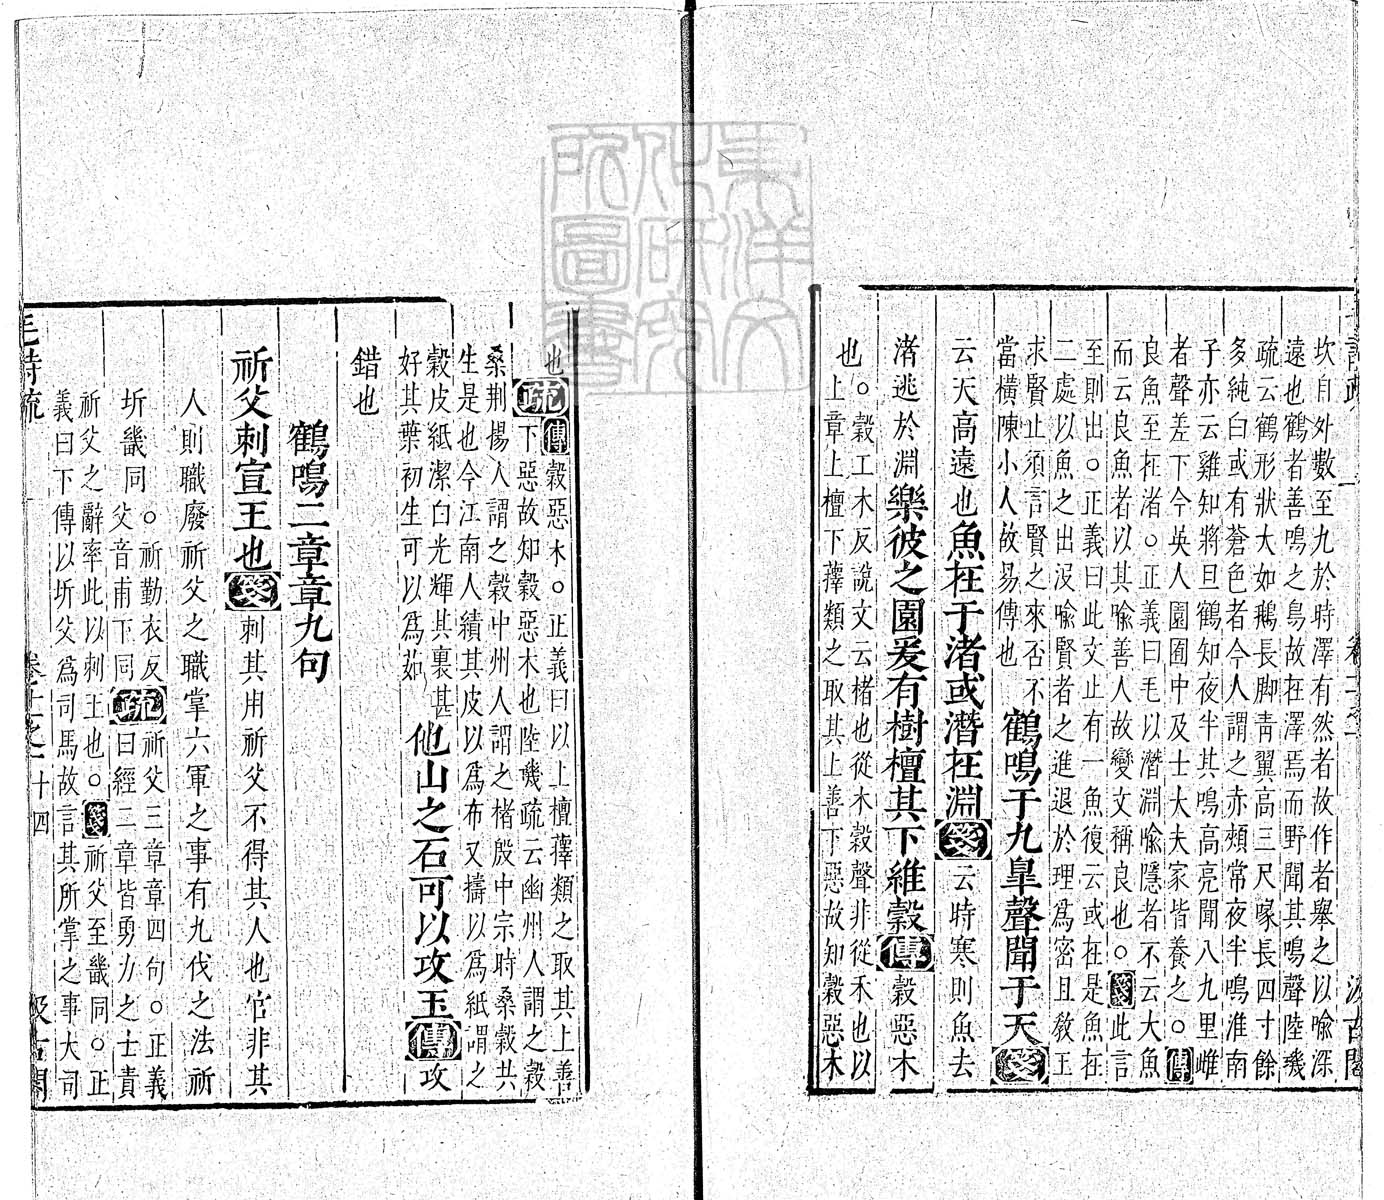 坎自外數至九於時澤有然者故作者舉之以喩深
遠也鶴者善鳴之鳥故在澤焉而野聞其鳴聲陸璣
疏云鶴形狀大如鵝長脚靑翼高三尺喙長四寸餘
多純白或有蒼色者今人謂之赤頰常夜半鳴淮南
子亦云雞知將旦鶴知夜半其鳴高亮聞八九里雌
者聲差下今吳人園囿中及士大夫家皆養之○傳
良魚至在渚○正義曰毛以潛淵喩隱者不云大魚
而云良魚者以其喩善人故變文稱良也○箋此言
至則出○正義曰此文止有一魚復云或在是魚在
二處以魚之出沒喩賢者之進退於理爲密且敎王
求賢止須言賢之來否不
當橫陳小人故易傳也
鶴鳴于九臯聲聞于天箋
云天高遠也魚在于渚或潛在淵箋云時寒則魚去
渚逃於淵樂彼之園爰有樹檀其下維穀傳穀惡木
也○穀工木反說文云楮也從木穀聲非從禾也以
上章上檀下蘀類之取其上善下惡故知穀惡木
也疏傳穀惡木○正義曰以上檀蘀類之取其上善
下惡故知穀惡木也陸璣疏云幽州人謂之穀
桑荆揚人謂之穀中州人謂之楮殷中宗時桑穀共
生是也今江南人績其皮以爲布又擣以爲紙謂之
穀皮紙潔白光輝其裏甚
好其葉初生可以爲茹
他山之石可以攻玉傳攻
錯也
鶴鳴二章章九句
祈父刺宣王也箋刺其用祈父不得其人也官非其
人則職廢祈父之職掌六軍之事有九伐之法祈
圻畿同○祈勤衣反
父音甫下同
疏祈父三章章四句○正義
曰經二章皆勇力之士責
祈父之辭率此以刺王也○箋祈父至畿同○正
義曰下傳以圻父爲司馬故言其所掌之事大司
毛詩疏 卷十一之一 十四 汲古閣
東洋文化研究所圖書